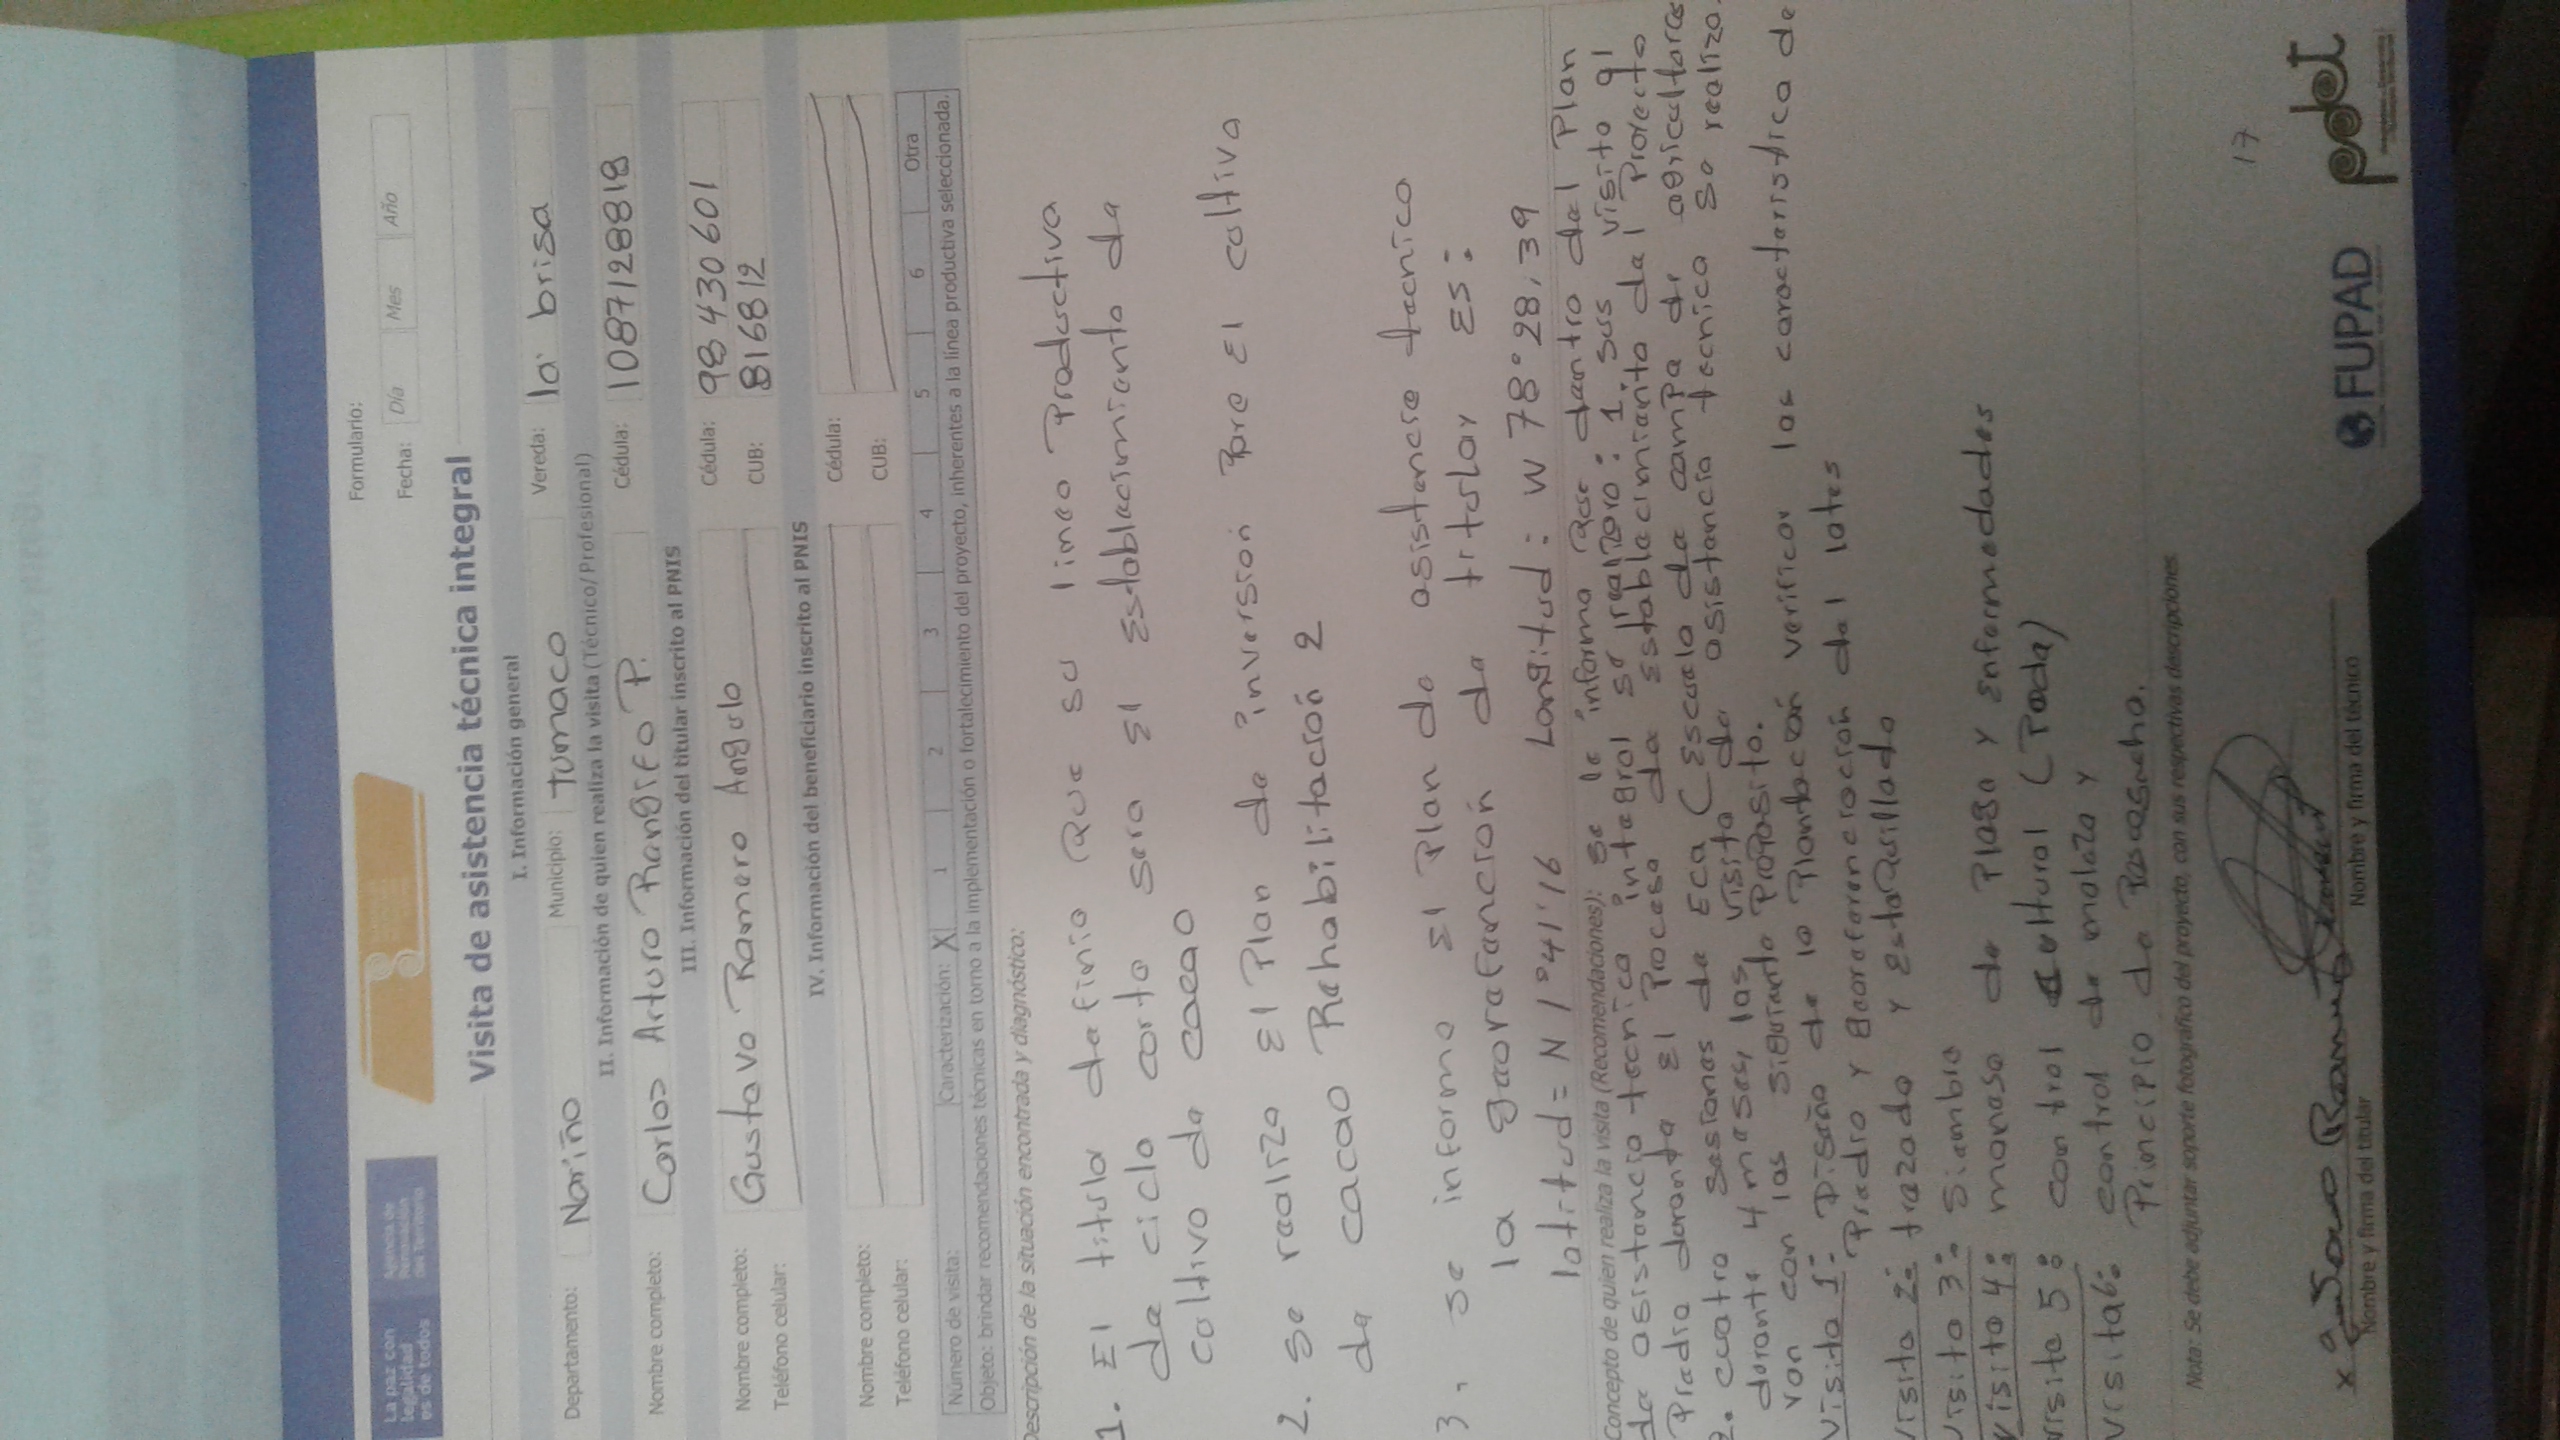 La paz con
legalidad
es de todos
Agencia de
Renovación
del Territorio
Formulario:
Fecha: Día Mes Año
Visita de asistencia técnica integral
I. Información general
Departamento: Nariño Municipio: tumaco Vereda: la brisa
II. Información de quien realiza la visita (Técnico/ Profesional)
Nombre completo: Carlos Arturo Rangifo P. Cédula: 1087128818
III. Información del titular inscrito al PNIS
Nombre completo: Gustavo Ramero Angulo Cédula: 98 430 601
Teléfono celular: CUB: 816812
IV. Información del beneficiario inscrito al PNIS
Nombre completo: Cédula:
Teléfono celular: CUB:
Número de visita: Caracterización: X 1 2 3 4 5 6 Otra
Objeto: brindar recomendaciones técnicas en torno a la implementación o fortalecimiento del proyecto, inherentes a la línea productiva seleccionada.
Descripción de la situación encontrada y diagnóstico:
1. El titular definio que su linea Productiva
de ciclo corto sera el Establecimiento de
cultivo de cacao
2. se realizo El Plan de inversión Para El cultivo
de cacao Rehabilitación 2
3. se informo El Plan de asistencia tecnico
la georefanción de titular ES:
latitud = N 1°41'16 Longitud: W 78°28,39
Concepto de quien realiza la visita (Recomendaciones): se le informa que dentro del Plan
de asistencia tecnica integral se realizara: 1 sus visita al
Predio durante El Proceso de Establecimiento del Proyecto
2. cuatro sesiones de Eca (Escuela de campa de agricultores
durante 4 meses, las visita de asistencia tecnica se realiza.
van con las siguiente Proposito.
Visita 1: Diseño de la Plantación verificar las caracteristica de
Predio y georeferenciación del lotes
Visita 2: trazado y Estaquillado
Visita 3: Siembra
Visita 4: maneso de Plaga y Enfermedades
visita 5: control cultural (Poda)
visita 6: control de maleza y
Principio de Poscosecha.
Nota: Se debe adjuntar soporte fotográfico del proyecto, con sus respectivas descripciones
17
x
Nombre y firma del titular
Nombre y firma del técnico
FUPAD
pdet